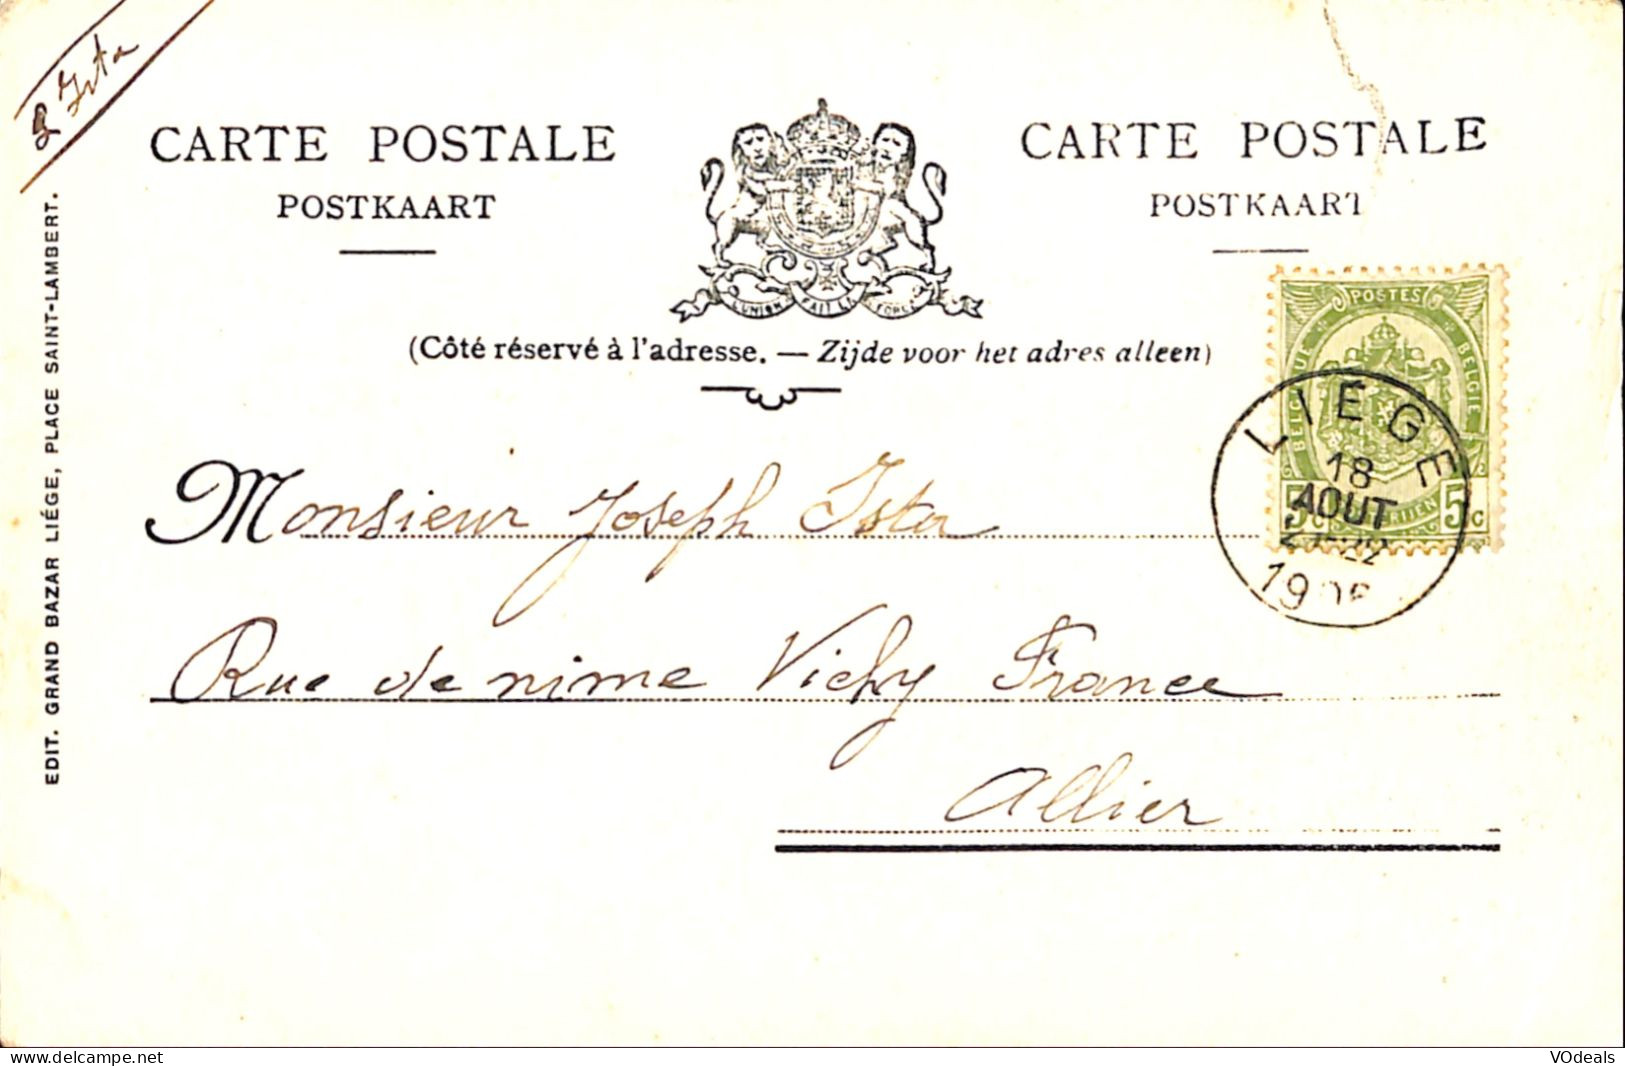 L Ista
CARTE POSTALE
POSTKAART
CARTE POSTALE
POSTKAART
L'UNION FAIT LA FORCE
(Côté réservé à l'adresse. — Zijde voor het adres alleen)
POSTES
BELGIQUE
BELGIE
5c
5c
LIÉGE
18
AOUT
21-22
Monsieur Joseph Ista
Rue de nime Vichy France
Allier
EDIT. GRAND BAZAR LIÉGE, PLACE SAINT-LAMBERT.
www.delcampe.net
VOdeals